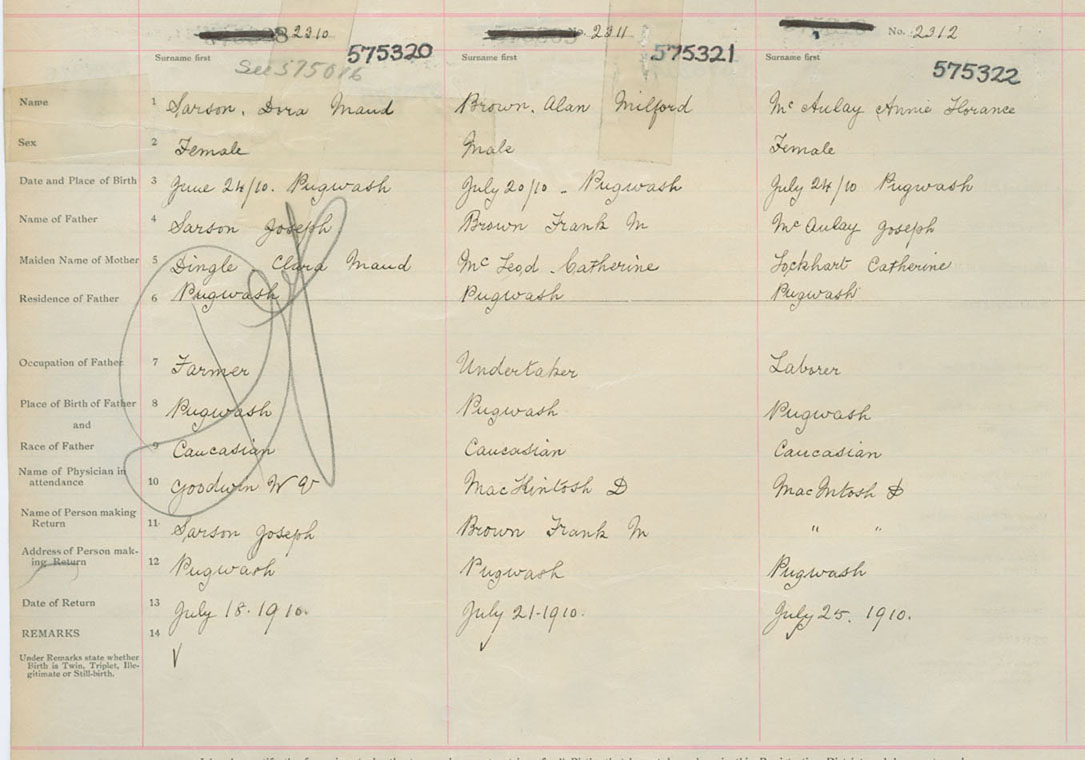 2310 No. 2311 No. 2312
575320 575321
Surname first Surname first Surname first
See 575016 575322
Name 1 Sarson, Dora Maud Brown, Alan Milford Mc Aulay Annie Florance
Sex 2 Female Male Female
Date and Place of Birth 3 June 24/10. Pugwash July 20/10 - Pugwash July 24/10 Pugwash
Name of Father 4 Sarson Joseph Brown Frank M Mc Aulay Joseph
Maiden Name of Mother 5 Dingle Clara Maud Mc Leod Catherine Lockhart Catherine
Residence of Father 6 Pugwash Pugwash Pugwash
Occupation of Father 7 Farmer Undertaker Laborer
Place of Birth of Father 8 Pugwash Pugwash Pugwash
and
Race of Father 9 Caucasian Caucasian Caucasian
Name of Physician in
attendance 10 Goodwin W V MacKintosh D MacIntosh D
Name of Person making
Return 11 Sarson Joseph Brown Frank M " "
Address of Person mak-
ing Return 12 Pugwash Pugwash Pugwash
Date of Return 13 July 18. 1910. July 21-1910. July 25. 1910.
REMARKS 14
Under Remarks state whether
Birth is Twin, Triplet, Ille-
gitimate or Still-birth.